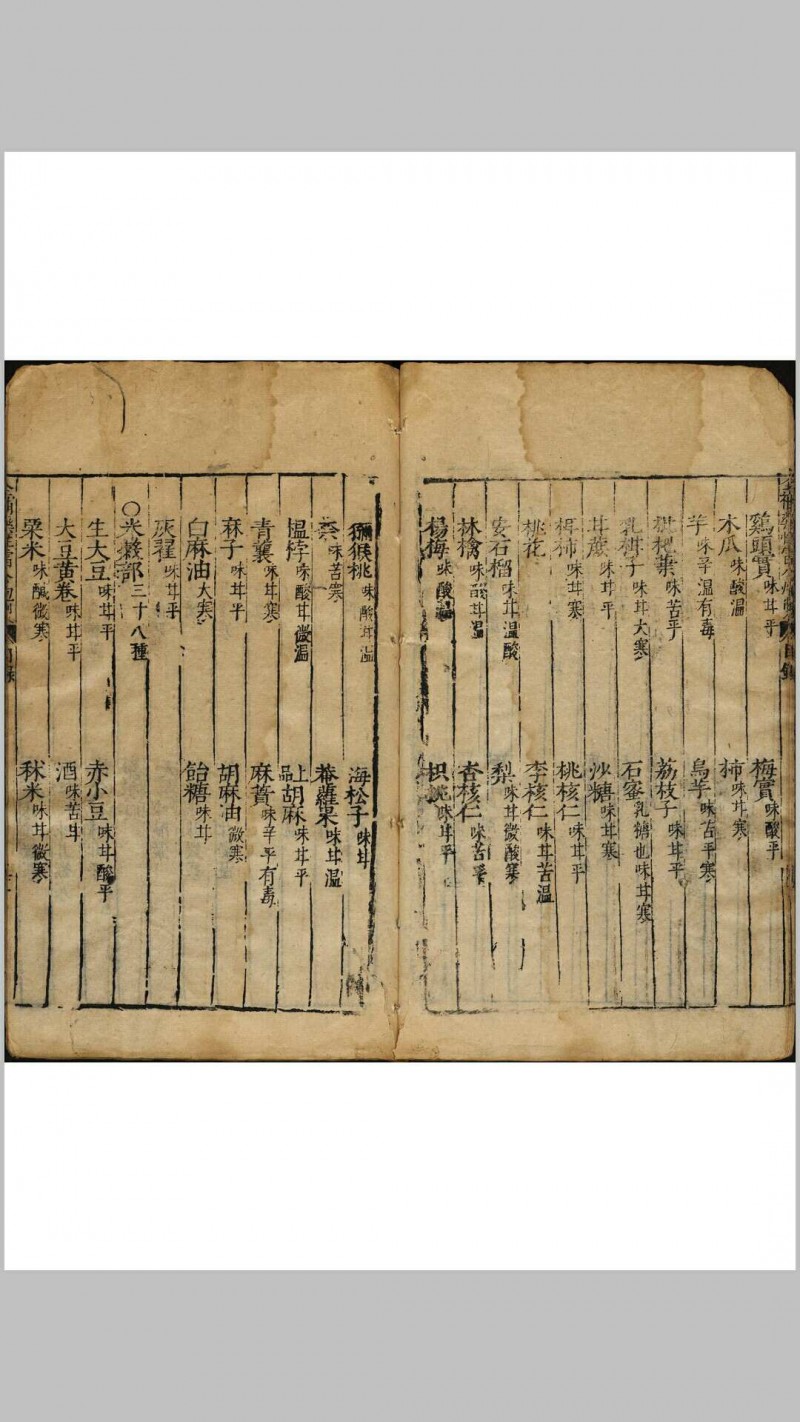 鷄頭實味甘平 梅實味酸平
木瓜味酸溫 柿味甘寒
芋味辛溫有毒 烏芋味苦平寒
枇杷葉味苦平 荔枝子味甘平
乳柑子味甘大寒 石蜜乳糖也味甘寒
甘蔗味甘平 沙糖味甘寒
椑柿味甘寒 桃核仁味甘平
桃花 李核仁味甘苦溫
安石榴味甘溫酸 梨味甘微酸寒
林檎味酸甘溫 杏核仁味苦
楊梅味酸溫 枳椇味甘平
獼猴桃味酸甘溫 海松子味甘
柰味苦寒 菴蘿果味甘溫
榲桲味酸甘微溫 上品胡麻味甘平
青蘘味甘寒 麻蕡味辛平有毒
麻子味甘平 胡麻油微寒
白麻油大寒 飴糖味甘
灰藋味甘平
○米穀部三十八種
生大豆味甘平 赤小豆味甘酸平
大豆黃卷味甘平 酒味苦甘
粟米味鹹微寒 秫米味甘微寒